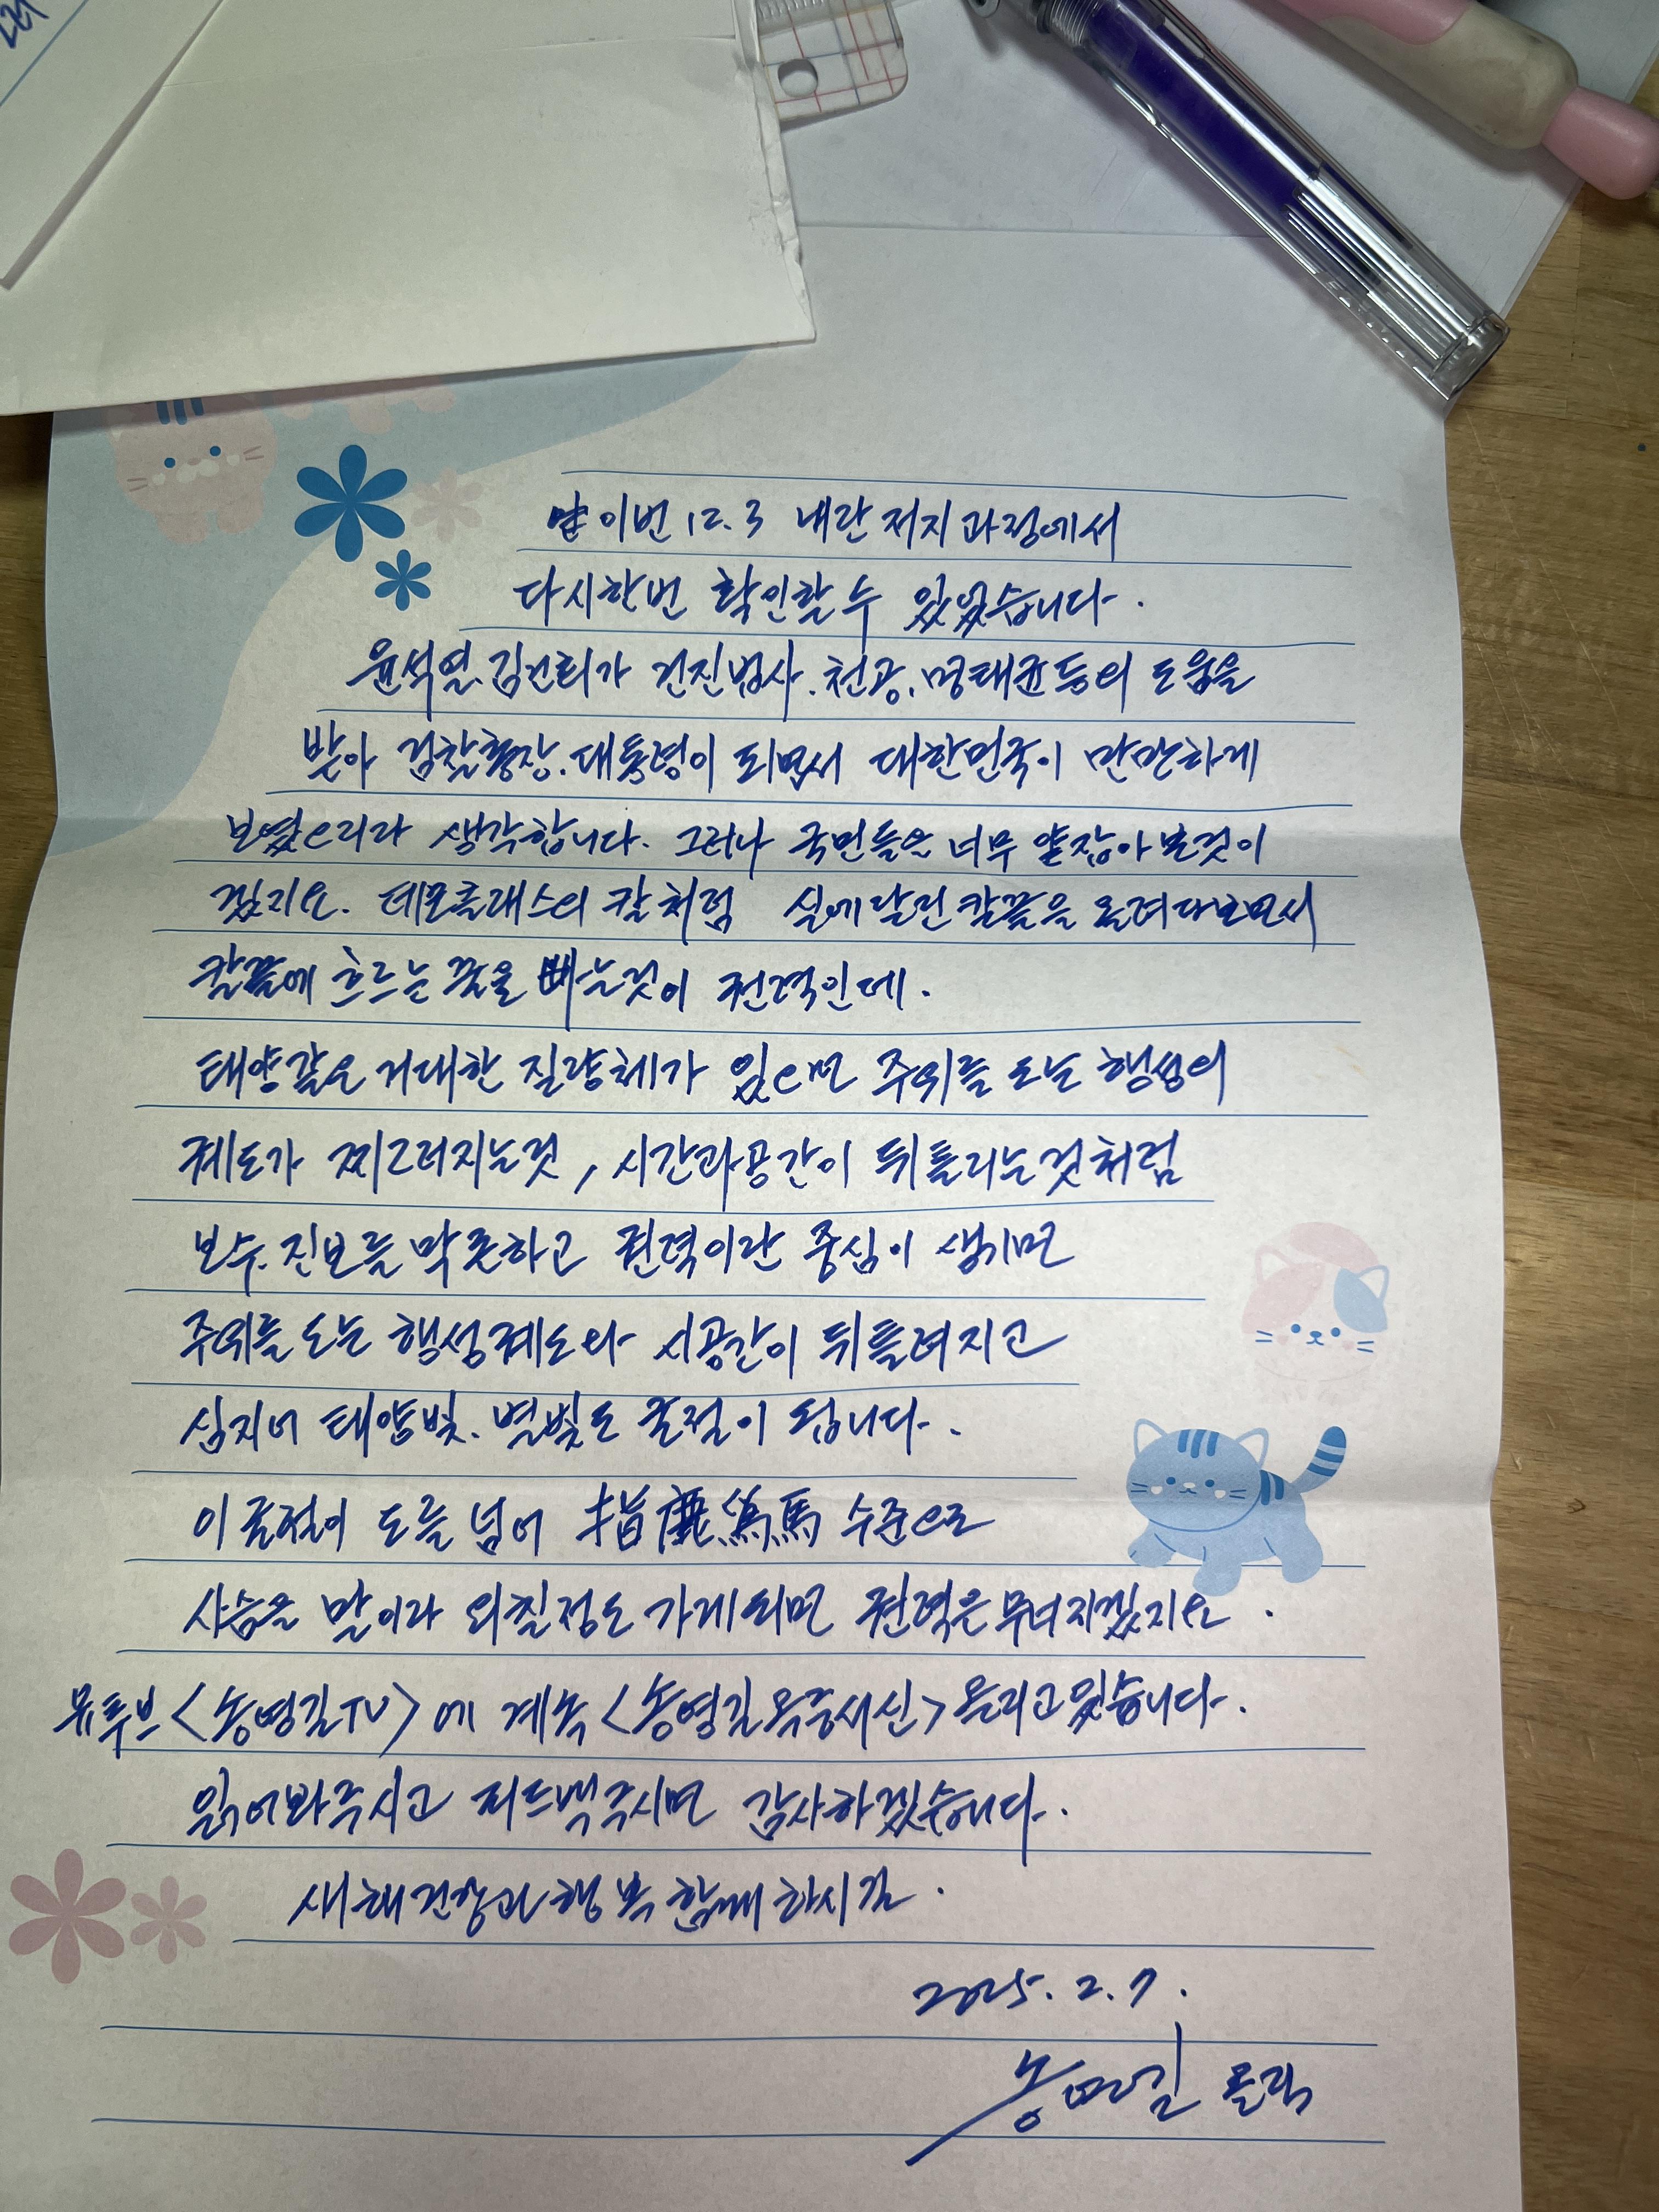 이번 12.3 내란 저지과정에서
다시한번 확인할 수 있었습니다.
윤석열.김건희가 건진법사.천공.명태균등의 도움을
받아 검찰총장.대통령이 되면서 대한민국이 만만하게
보였으리라 생각합니다. 그러나 국민들을 너무 얕잡아 본것이
겠지요. 데모클래스의 칼처럼 실에달린 칼끝을 올려다보면서
칼끝에 흐르는 꿀을 빠는것이 권력인데.
태양같은 거대한 질량체가 있으면 주위를 도는 행성의
궤도가 찌그러지는것, 시간과공간이 뒤틀리는것처럼
보수.진보를 막론하고 권력이란 중심이 생기면
주위를 도는 행성궤도와 시공간이 뒤틀려지고
심지어 태양빛.별빛도 굴절이 됩니다.
이 굴절이 도를 넘어 指鹿爲馬 수준으로
사슴을 말이라 외칠정도 가게되면 권력은 무너지겠지요.
유투브 <송영길TV>에 계속 <송영길옥중서신> 올리고있습니다.
읽어봐주시고 피드백주시면 감사하겠습니다.
새해건강과 행복 함께하시길.
2025. 2. 7.
송영길 올림